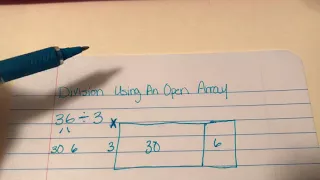 Division Using An Open Array
36 ÷ 3
30 6 3 30 6